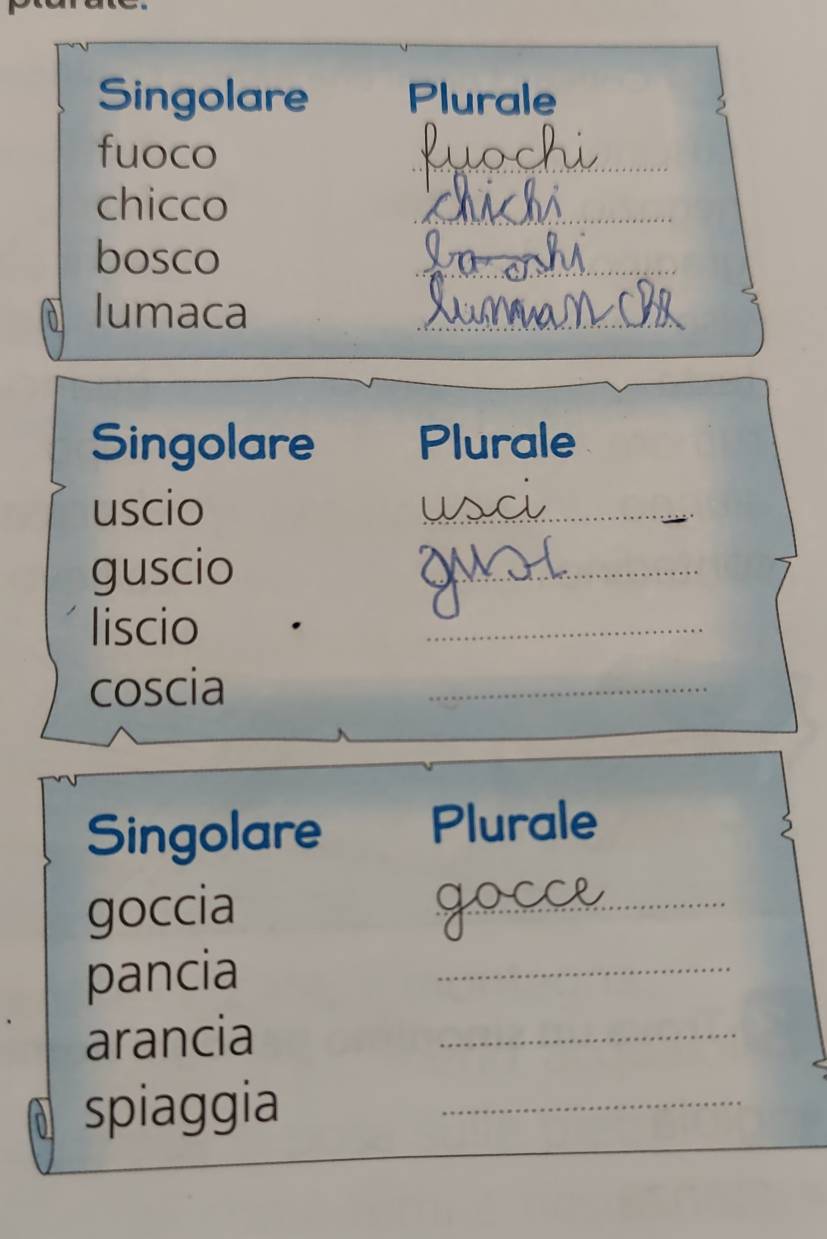 plurale.
Singolare Plurale
fuoco fuochi
chicco chichi
bosco
lumaca
Singolare Plurale
uscio usci
guscio
liscio
coscia
Singolare Plurale
goccia gocce
pancia
arancia
spiaggia